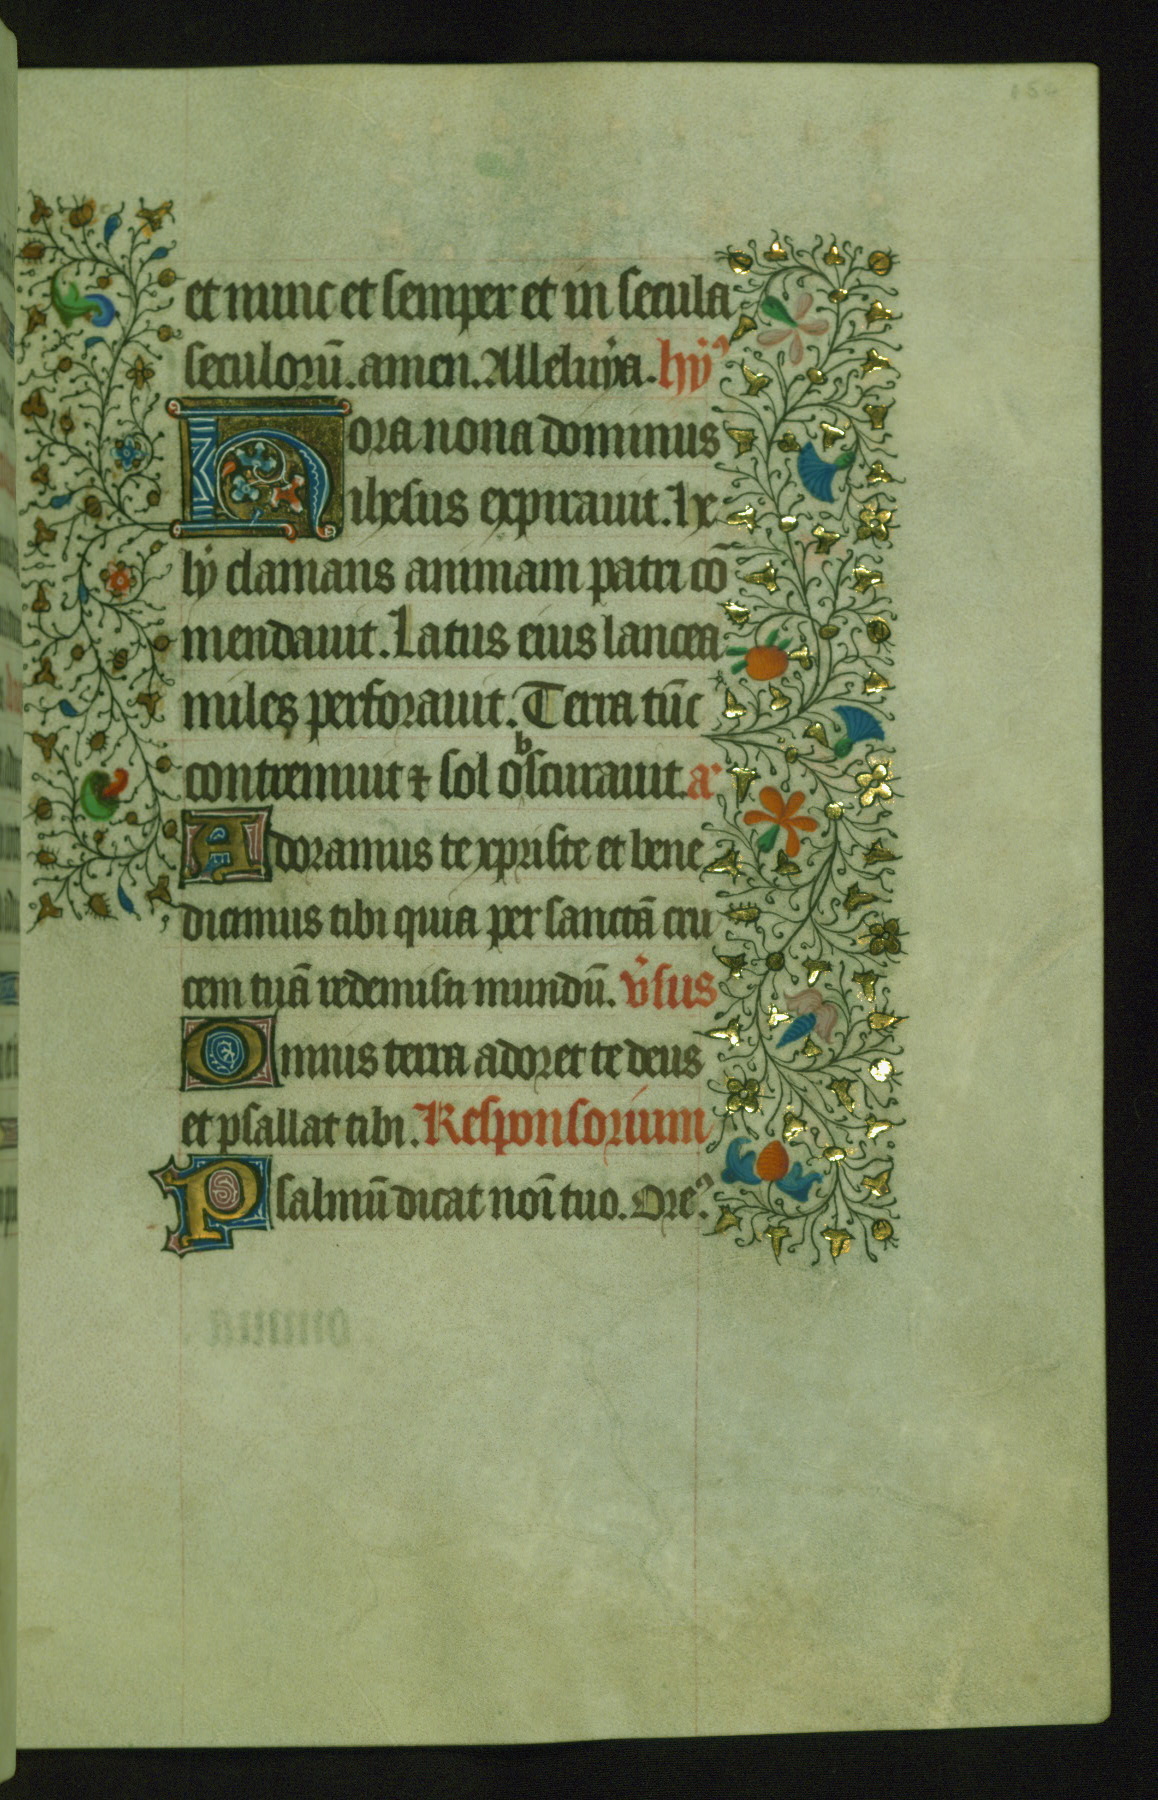 et nunc et semper et in secula
seculorū. amen. Alleluya. hỹ
Hora nona dominus
ihesus expirauit. Ix
hy clamans animam patri cō
mendauit. Latus eius lancea
miles perforauit. Terra tūc
contremuit ⁊ sol obscurauit. a
Adoramus te xpriste et bene
dicimus tibi quia per sanctā cru
cem tuā redemisti mundū. v̄sus
Omnis terra adoret te deus
et psallat tibi. Responsorium
Psalmū dicat noī tuo. Ore